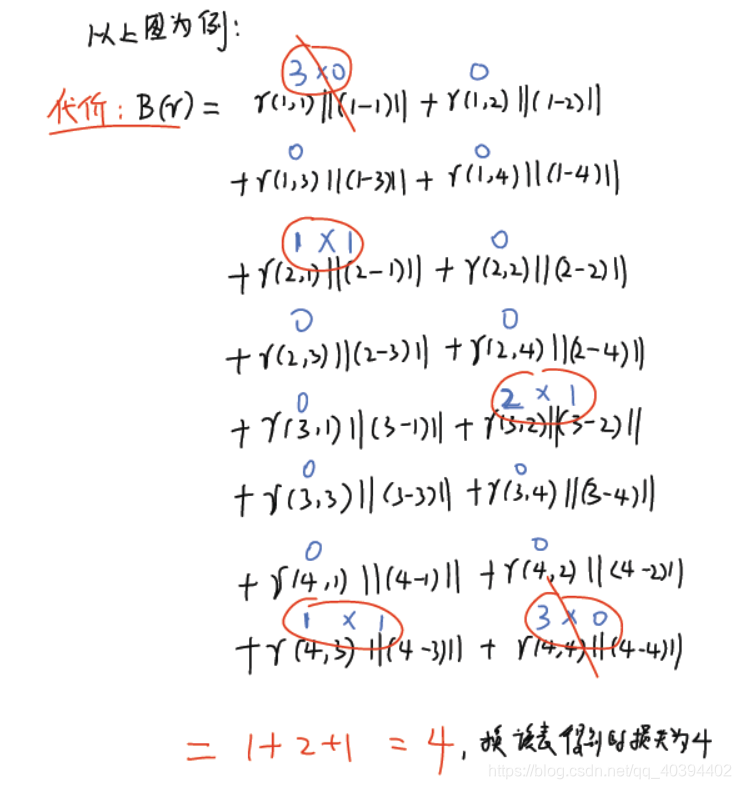 以上图为例:
3 × 0 0
代价: B(γ) = γ(1,1)||(1-1)|| + γ(1,2)||(1-2)||
0 0
+ γ(1,3)||(1-3)|| + γ(1,4)||(1-4)||
1 × 1 0
+ γ(2,1)||(2-1)|| + γ(2,2)||(2-2)||
0 0
+ γ(2,3)||(2-3)|| + γ(2,4)||(2-4)||
0 2 × 1
+ γ(3,1)||(3-1)|| + γ(3,2)||(3-2)||
0 0
+ γ(3,3)||(3-3)|| + γ(3,4)||(3-4)||
0 0
+ γ(4,1)||(4-1)|| + γ(4,2)||(4-2)||
1 × 1 3 × 0
+ γ(4,3)||(4-3)|| + γ(4,4)||(4-4)||
= 1+2+1 = 4, 按该表得到的损失为4
https://blog.csdn.net/qq_40394402